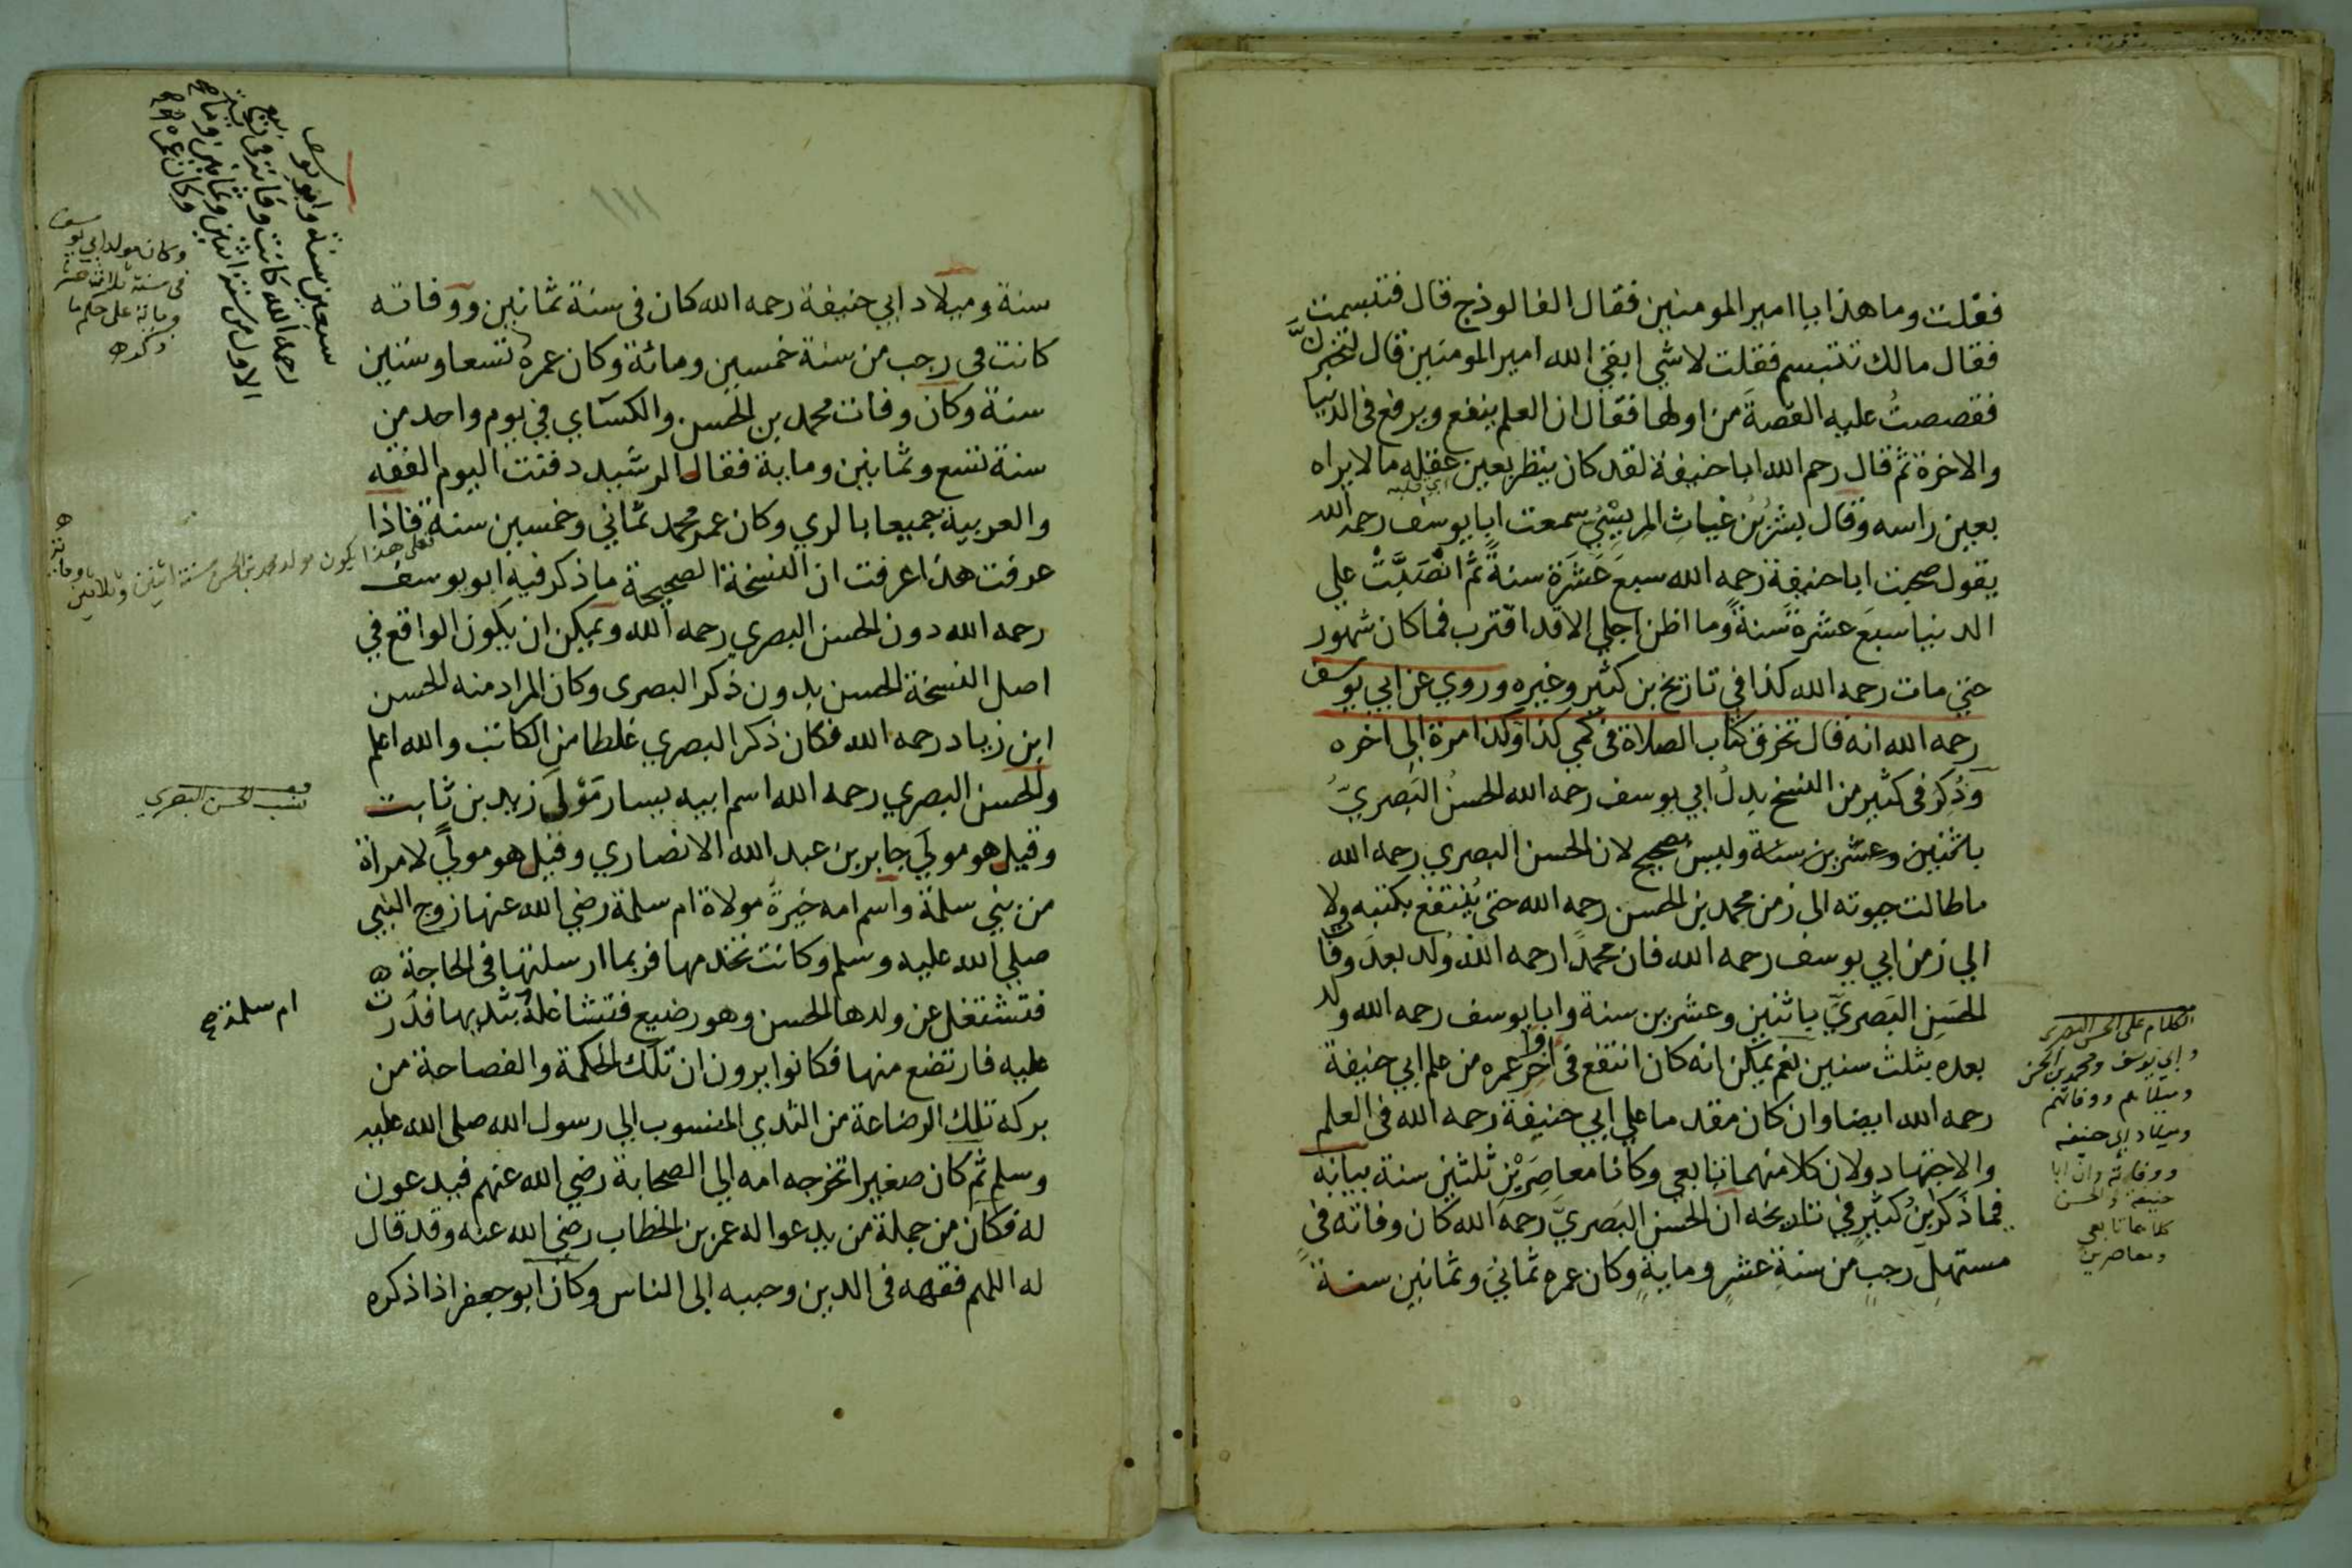 فقلت وما هذا يا امير المومنين فقال الفالوذج قال فتبسمت
فقال مالك تتبسم فقلت لا شي ابقي الله امير المومنين قال لتخبرنَّ
فقصصتُ عليه القصةَ من اولها فقال ان العلم ينفع ويرفع في الدنيا
والاخرة ثم قال رحم الله ابا حنيفة لقد كان ينظر بعين عقله ما لا يراه
اي قلبه
بعين راسه وقال بشرُ بْنُ غياثِ المرِيسْيُ سمعت ابا يوسف رحمه الله
يقول صحبت ابا حنيفة رحمه الله سبعَ عَشَرَة سنةً ثم انْصَبَّتْ علي
الدنيا سبعَ عشرة سَنةً وما اظن اجلي الا قد اقترب فما كان شهور
حتي مات رحمه الله كذا في تاريخ بن كثير وغيره وروي عن ابي يوسف
رحمه الله انه قال تخرق كتاب الصلاة في كمي كذا وكذا مرة الى اخره
وَذُكِرَ في كثير من النسخ بدلُ ابي يوسف رحمه الله الحسنُ البَصريُّ
باثنين وعشرين سنة وليس بصحيح لان الحسن البصري رحمه الله
ما طالت حيوته الى زمن محمد بن الحسن رحمه الله حتى يُنتفع بكتبه ولا
الي زمن ابي يوسف رحمه الله فان محمدًا رحمه الله وُلد بعدَ وفا
الحسَنِ البَصريَّ باثنين وعشرين سنة وابا يوسف رحمه الله ولد
بعده بثلث سنين نعم يمكن انه كان انتفع في اخر عمره من علم ابي حنيفة
رحمه الله ايضا وان كان مقدما علي ابي حنيفة رحمه الله في العلم
والاجتهاد ولان كلا منهما تابعي وكانا معاصِرَيْنِ ثلثين سنة بيانه
فيما ذكر بنُ كثيرٍ في تاريخه ان الحسن البَصريَّ رحمه الله كان وفاته في
مستهلِ رجبٍ من سنةِ عشرٍ ومايةٍ وكان عمره ثماني وثمانين سنة
الكلام على الحسن البصرى
وابي يوسف ومحمد بن الحسن
وميلادهم ووفاتهم
وميلاد ابي حنيفه
ووفاته وان ابا
حنيفة والحسن
كلاهما تابعي
ومعاصرين
سنة وميلاد ابي حنيفة رحمه الله كان في سنة ثمانين ووفاته
كانت في رجب من سنة خمسين ومائة وكان عمره تسعا وستين
سنة وكان وفات محمد بن الحسن والكسَاي في يوم واحد من
سنة تسع وثمانين وماية فقال الرشيد دفنت اليوم الفقه
والعربية جميعا بالري وكان عمر محمد ثماني وخمسين سنة فاذا
عرفت هذا عرفت ان النسخة الصحيحة ما ذكر فيه ابو يوسف
رحمه الله دون الحسن البصري رحمه الله ويمكن ان يكون الواقع في
اصل النسخة الحسن بدون ذكر البصرى وكان المراد منه الحسن
ابن زياد رحمه الله فكان ذكر البصري غلطا من الكاتب والله اعلم
والحسن البصري رحمه الله اسم ابيه يسار مَوْلَى زيد بن ثابت
وقيل هو مولَي جابر بن عبد الله الانصاري وقيل هو موليً لامراة
من بني سلمة واسم امه خيرةُ مولاة ام سلمة رضي الله عنها زوج النبي
صلي الله عليه وسلم وكانت تخدمها فربما ارسلتها في الحاجة
فتشتغل عن ولدها الحسن وهو رضيع فتشاغلهُ بثديها فدرت
عليه فارتضع منها فكانوا يرون ان تلك الحكمة والفصاحة من
بركه تلك الرضاعة من الثدي المنسوب الي رسول الله صلى الله عليه
وسلم ثم كان صغيرا تخرجه امه الى الصحابة رضي الله عنهم فيدعون
له فكان من جملة من يدعوا له عمر بن الخطاب رضي الله عنه وقد قال
له اللهم فقهه في الدين وحببه الى الناس وكان ابو جعفر اذا ذكره
سبعين سنة وابو يوسف
رحمه الله كانت وفاته في ربيع
الاول من سنة اثنين وثمانين وماية
وكان عمره
وكان مولد ابي يوسف
في سنة ثلاث عشرة
وماية على حكم ما
ذكره
فعلى هذا يكون مولد محمد بن الحسن سنة اثنين وثلاثين وماية
نسب الحسن البصري
ام سلمة